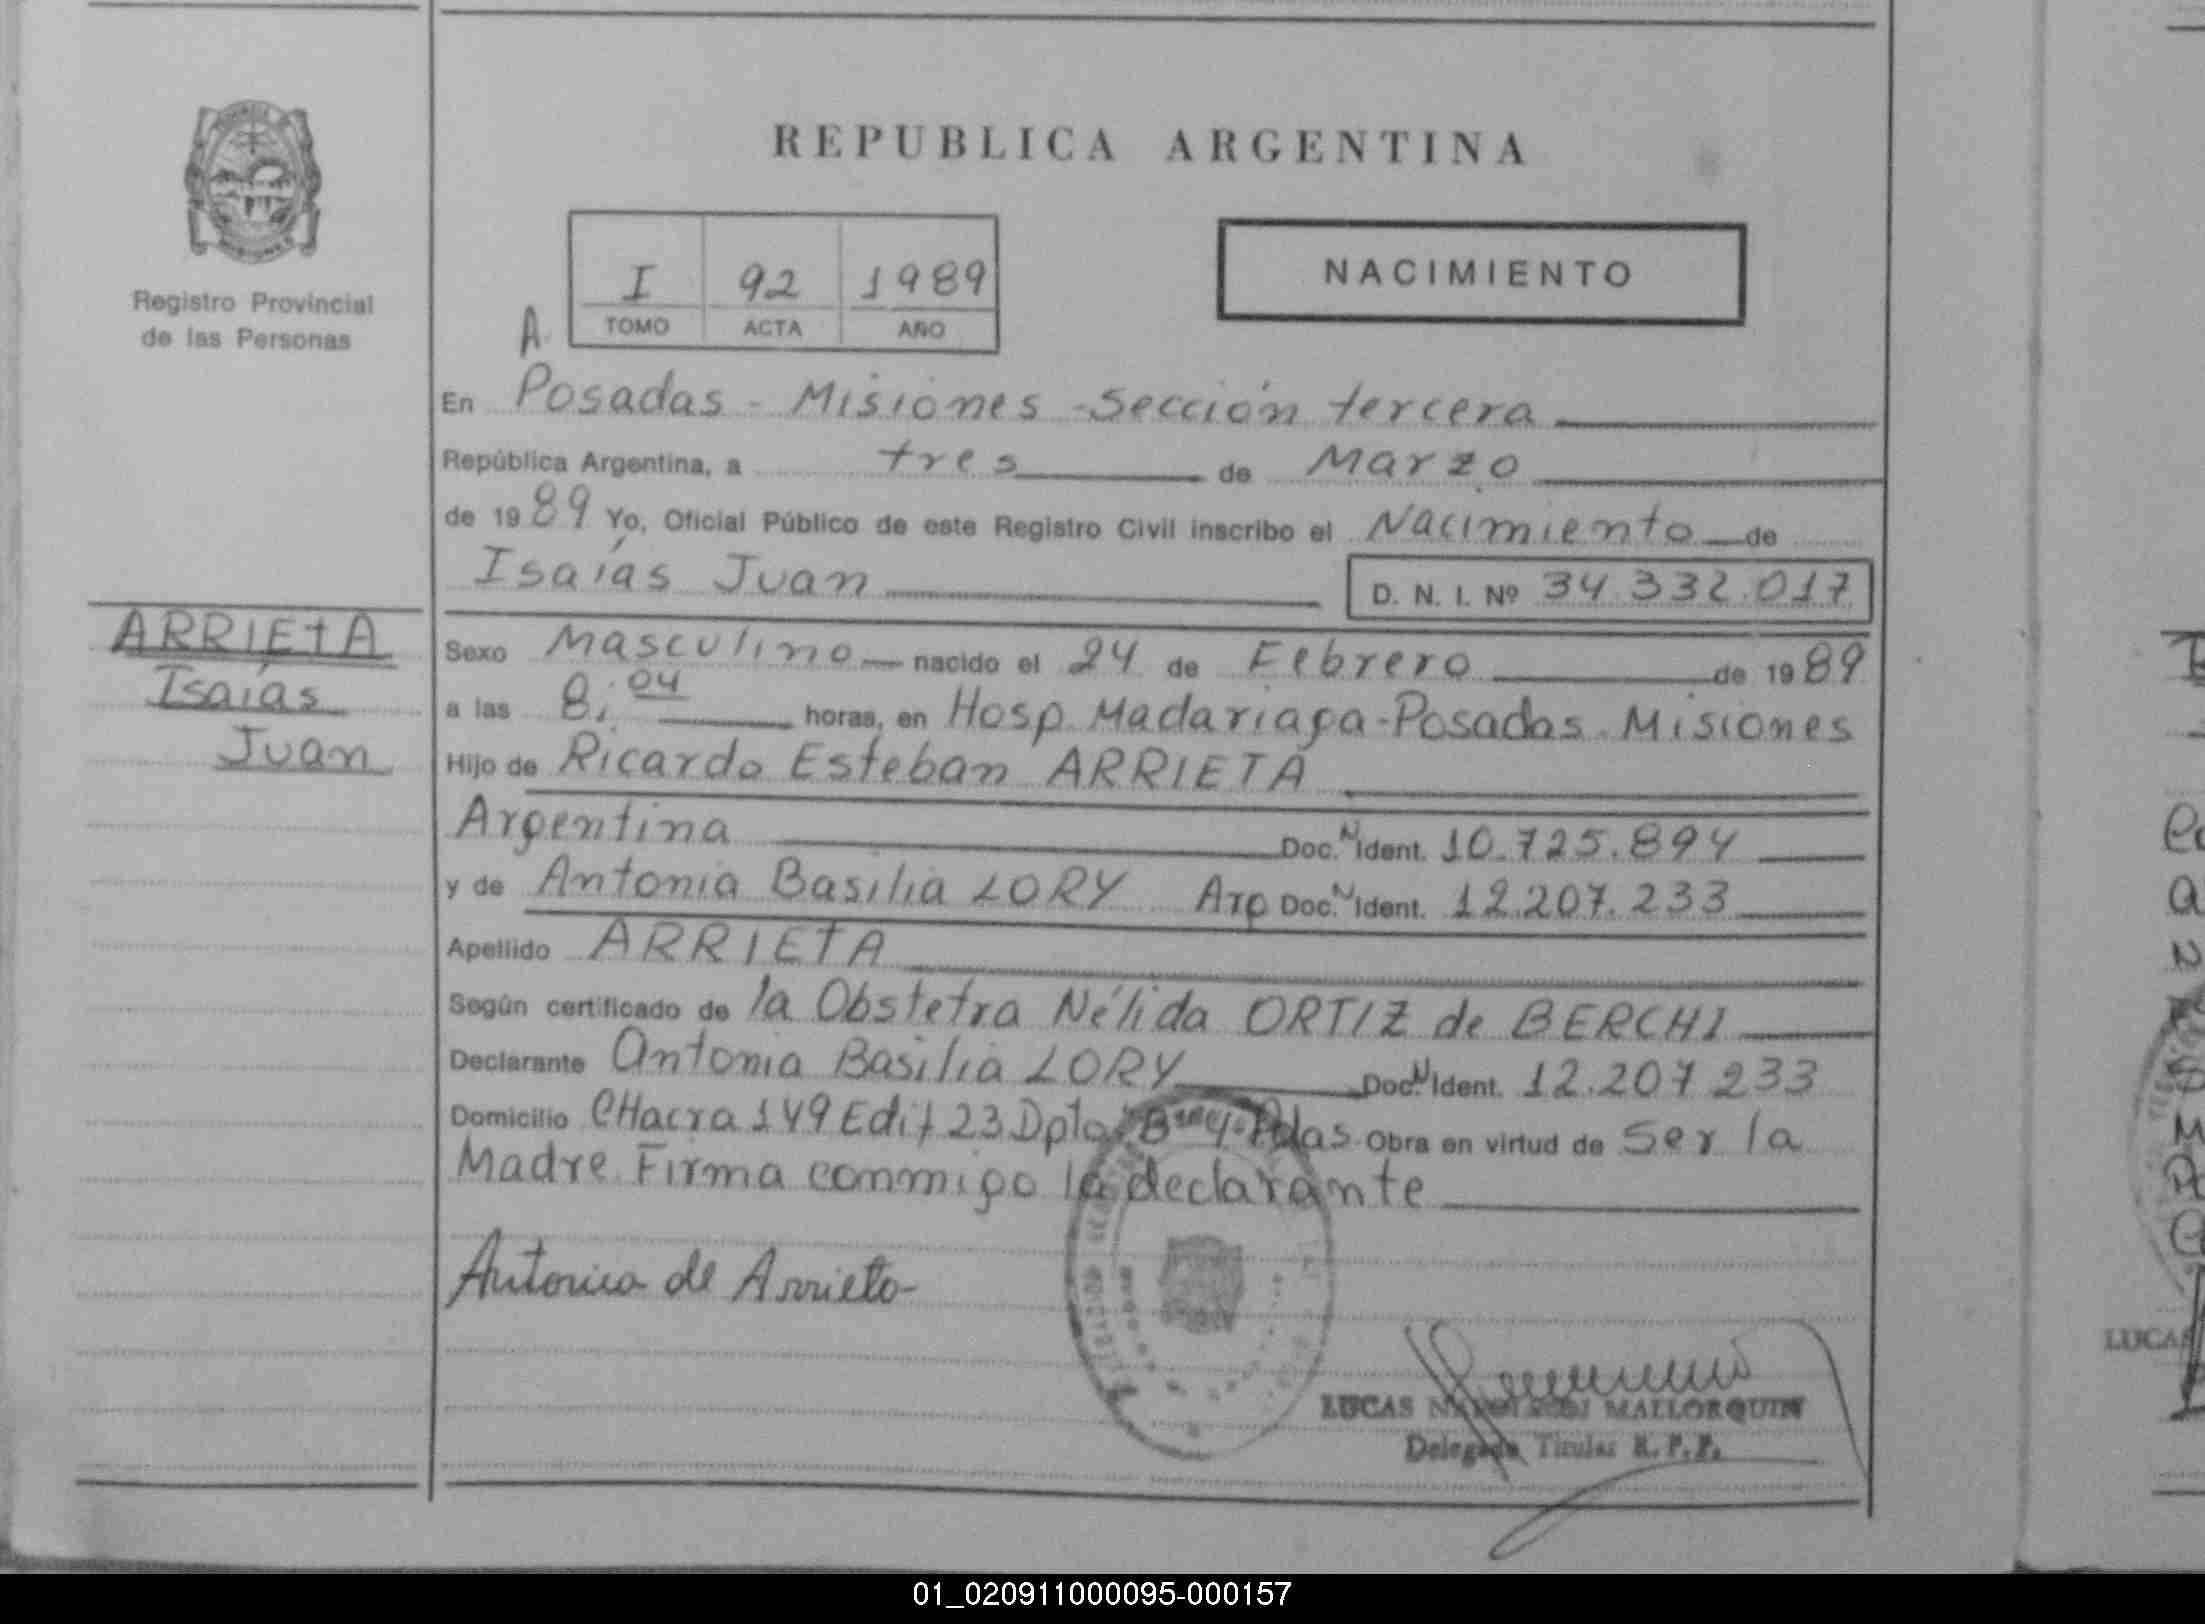 REPUBLICA ARGENTINA
Registro Provincial
de las Personas
NACIMIENTO
I 92 1989
A TOMO ACTA AÑO
En Posadas - Misiones - Sección tercera
República Argentina, a tres de Marzo
de 1989 Yo, Oficial Público de este Registro Civil inscribo el Nacimiento de
Isaías Juan D. N. I. Nº 34.332.017
ARRIETA
Isaías
Juan
Sexo Masculino nacido el 24 de Febrero de 1989
a las 8:04 horas, en Hosp. Madariaga - Posadas - Misiones
Hijo de Ricardo Esteban ARRIETA
Argentina Doc. N Ident. 10.725.894
y de Antonia Basilia LORY Arg Doc. N Ident. 12.207.233
Apellido ARRIETA
Según certificado de la Obstetra Nélida ORTIZ de BERCHI
Declarante Antonia Basilia LORY Doc. N Ident. 12.207 233
Domicilio CHacra 149 Edif 23 Dpto Obra en virtud de Ser la
Madre. Firma commigo la declarante
Antonia de Arrieta
LUCAS MALLORQUIN
Delegado Titular R. P. P.
LUCAS
01_020911000095-000157